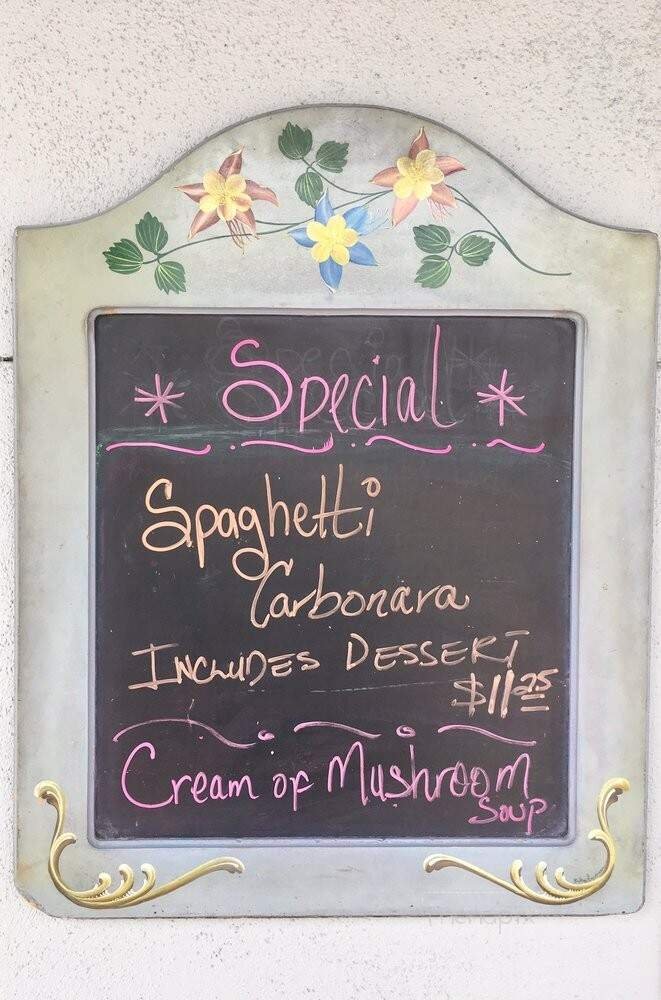 * Special *
Spaghetti
Carbonara
INCLUDES DESSERT
$11.25
Cream of Mushroom
Soup